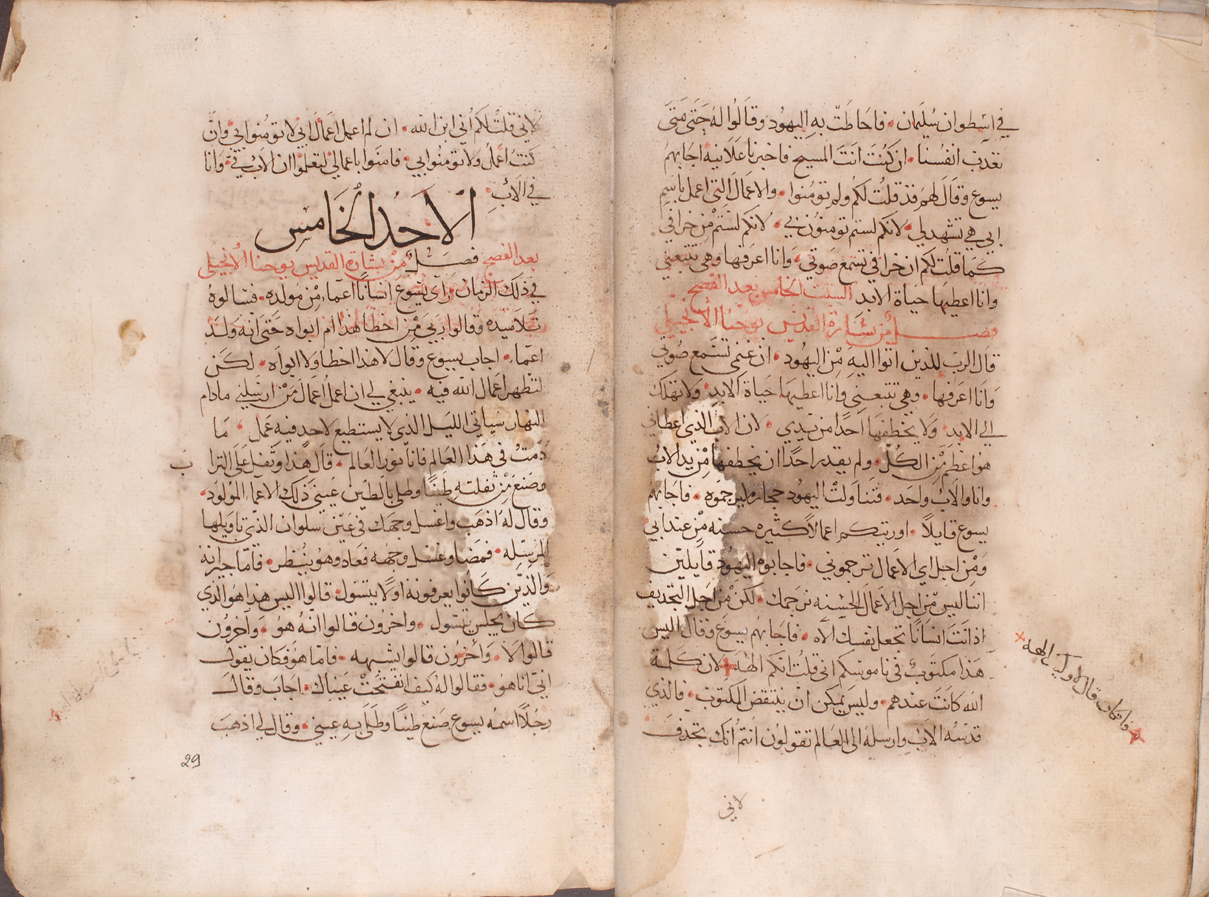 في اسطوان سليمان • فاحاطت به اليهود وقالوا له حتى متى
تعذب انفسنا • ان كنت انت المسيح فاخبرنا علانيه اجابهم
يسوع وقال لهم قد قلت لكم ولم تومنوا • والاعمال التي اعمل باسم
ابي هي تشهد لي • لانكم لستم تومنون بي • لانكم لستم من خرافي
كما قلت لكم ان خرافي تسمع صوتي • وانا اعرفها وهي تتبعني
وانا اعطيها حياة الابد السبت الخامس بعد الفصح
فصل من بشارة القديس يوحنا الانجيلي
قال الرب للذين اتوا اليه من اليهود • ان غنمي تستمع صوتي
وانا اعرفها • وهي تتبعني وانا اعطيها حياة الابد • ولا تهلك
الى الابد • ولا يخطفها احدا من يدي • لان الاب الذي اعطاني
هو اعظم من الكل • ولم يقدر احدا ان يخطفها من يد الاب
وانا والاب واحد • فتناولت اليهود حجاره ليرجموه • فاجابهم
يسوع قايلا • اوريتكم اعمالا كثيره حسنه من عند ابي
ومن اجل اي الاعمال ترجموني • فاجابوه اليهود قايلين
اننا ليس من اجل الاعمال الحسنه نرجمك • لكن من اجل التجديف
اذ انت انسانا تجعل نفسك الاه • فاجابهم يسوع وقال اليس
هذا مكتوب في ناموسكم اني قلت انكم الهه + لان كلمة
الله كانت عندهم • وليس يمكن ان ينتقض المكتوب • فالذي
قدسه الاب وارسله الى العالم تقولون انتم انك تجدف
لاني
+ فان كان قال لاوليك الهه +
لاني قلت لكم اني ابن الله • ان لم اعمل اعمال ابي لا تومنوا بي • وان
كنت اعمل ولا تومنوا بي • فامنوا باعمالي لتعلموا ان الاب في • وانا
في الاب •
الاحد الخامس
بعد الفصح فصل من بشارة القديس يوحنا الانجيلي
في ذلك الزمان راى يسوع انسانا اعما • من مولده • فسالوه
تلاميذه وقالوا ربي من اخطا هذا ام ابواه حتى انه ولد
اعما • اجاب يسوع وقال لا هذا اخطا ولا ابواه • لكن
لتظهر اعمال الله فيه • ينبغي لي ان اعمل اعمال من ارسلني ما دام
النهار سياتي الليل الذي لا يستطيع لاحد فيه عمل • ما
دمت في هذا العالم فانا نور العالم • قال هذا وتفل على الترا
ب
وصنع من تفلته طينا وطلى بالطين عيني ذلك الاعما المولود •
وقال له اذهب واغسل وجهك في عين سلوان الذي تاويلها
المرسله • فمضا وغسل وجهه فعاد وهو ينظر • فاما جيرانه
والذين كانوا يعرفونه اولا يتسول • قالوا اليس هذا هو الذي
كان يجلس يتسول • واخرون قالوا انه هو • واخرون
قالوا لا • واخرون قالوا يشبهه • فاما هو فكان يقول
اني انا هو • فقالوا له كيف انفتحت عيناك • اجاب وقال
رجلا اسمه يسوع صنع طينا وطلى به عيني • وقال لي اذهب
29